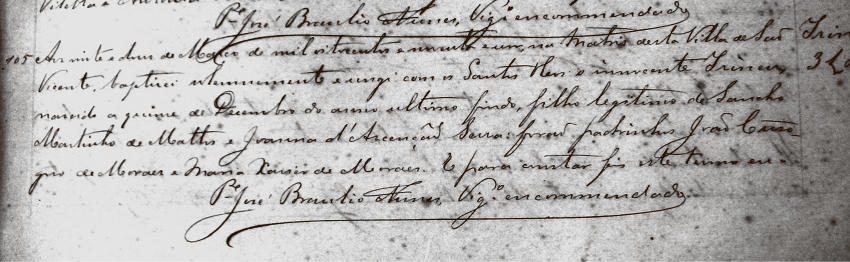 Pe. José Braulio Nunes, Vigº encommendado
105 Aos vinte e dous de Março de mil oitocentos e noventa e um, na Matriz desta Villa de São
Vicente, baptizei solemnemente e ungi com os Santos Oleos o innocente Irineu,
nascido a quinze de Dezembro do anno ultimo findo, filho legitimo de Sancho
Martinho de Mattos e Joanna d'Ascenção Serra: forão padrinhos João
de Moraes e Maria Xavier de Moraes. E para constar fiz este termo eu
Pe. José Braulio Nunes, Vigº encommendado